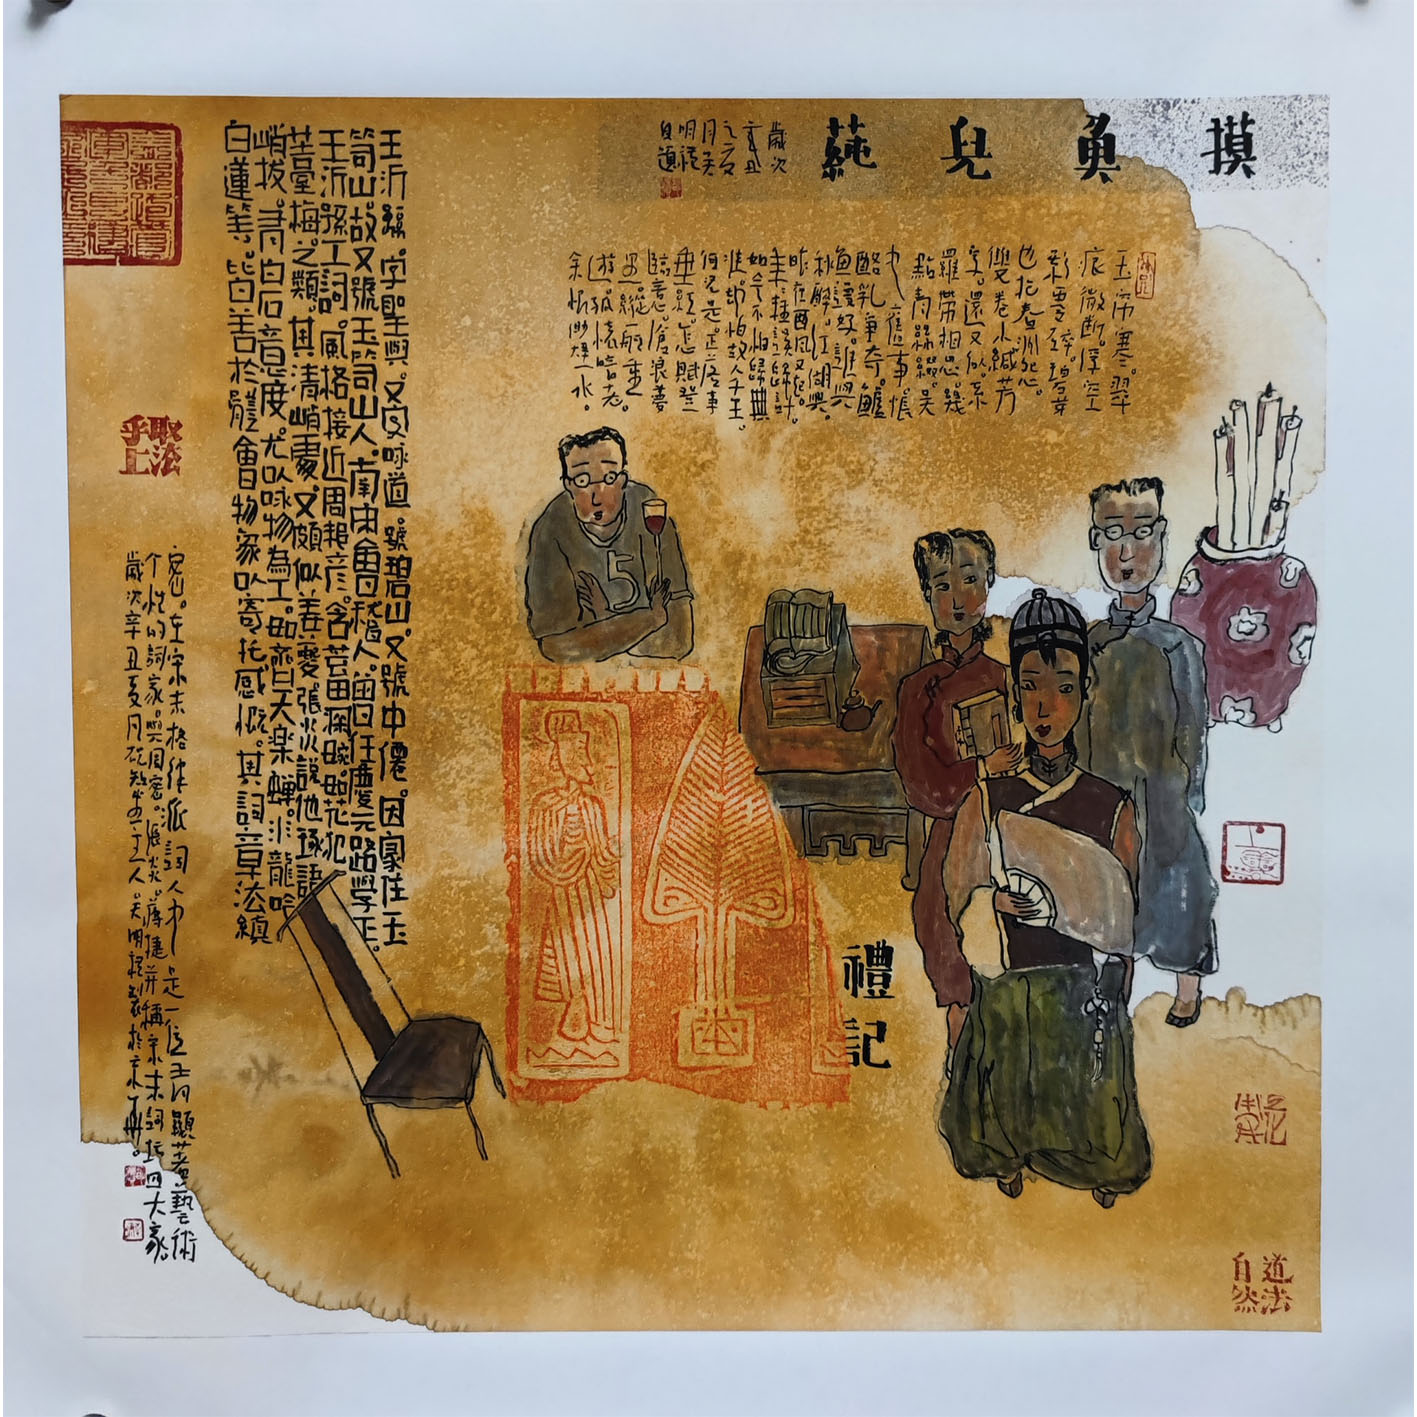 摸魚兒 蒓
歲次
辛丑
之夏
月吳
明
自道
玉帘寒。翠
痕微斷。浮空
影零碎。碧芽
也抱春洲怨。
雙卷小緘芳
字。還又似。系
羅帶相思。幾
點青鈿綴。吳
中舊事。悵
酪乳爭奇。鱸
魚謾好。誰與
秋醉。江湖興。
昨夜西風又起。
年年輕誤歸計。
如今不怕歸無
准。却怕故人千里。
何況是。正落日
垂虹。怎賦登
臨意。滄浪夢
里。縱一舸重
游。孤懷暗老。
余恨渺煙水。
禮記
王沂孫。字聖與。又字咏道。號碧山。又號中僊。因家住玉
笥山。故又號玉笥山人。南宋會稽人。曾任慶元路學正。
王沂孫工詞。風格接近周邦彦。含蓄深婉。如花犯
苔梅之類。其清峭處。又頗似姜夔。張炎說他琢語
峭拔。有白石意度。尤以咏物為工。如齊天樂蟬。水龍吟
白蓮等。皆善於體會物象以寄托感慨。其詞章法縝
密。在宋末格律派詞人中。是一位有顯著藝術
个性的詞家。與周密。張炎。蔣捷并稱宋末詞壇四大家。
歲次辛丑夏月主人。吳明製於京華。
取法乎上
道法自然